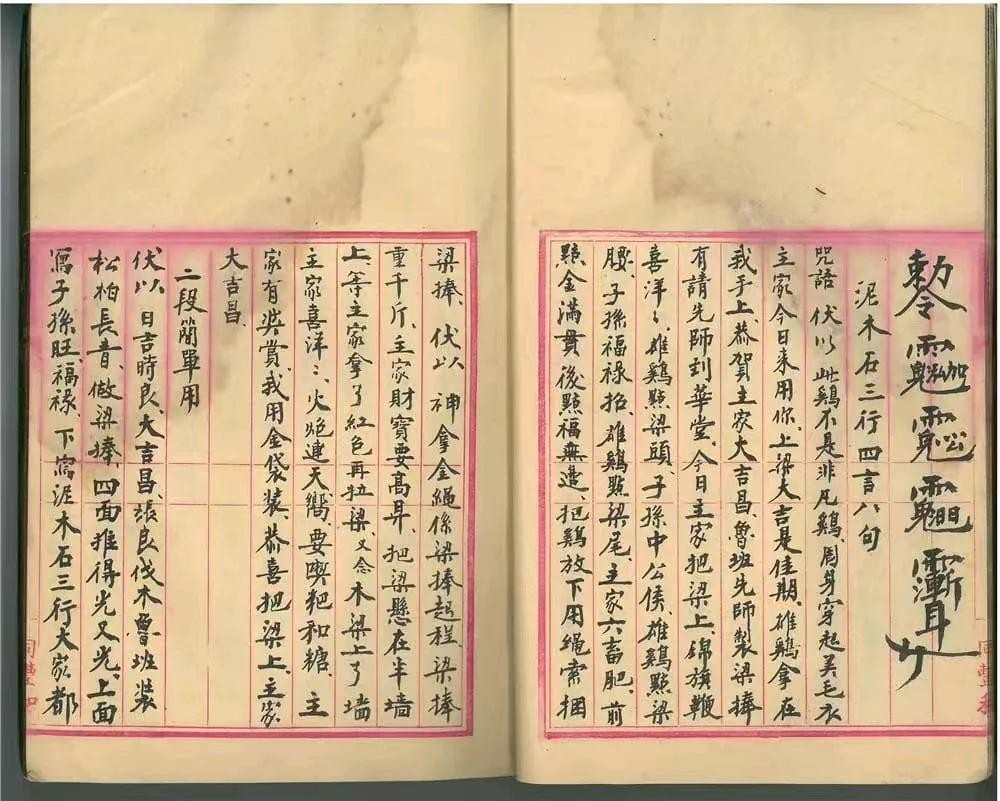 勅令
泥木石三行四言八句
咒語 伏以 此鷄不是非凡鷄、周身穿起美毛衣
主家今日来用你、上梁大吉是佳期、雄鷄拿在
我手上、恭賀主家大吉昌、魯班先師製梁捧
有請先師到華堂、今日主家把梁上、錦旗鞭
喜洋々、雄鷄點梁頭、子孫中公侯、雄鷄點梁
腰、子孫福禄招、雄鷄點梁尾、主家六畜肥、前
點金滿貫後點福無邊、把鷄放下用绳索捆
梁捧、伏以 神拿金繩係梁捧起程、梁捧
重千斤、主家財寶要高昇、把梁懸在半墙
上、等主家拿了紅色再拉梁、又念 木梁上了墙
主家喜洋々、火炮連天嚮、要喫粑和糖、主
家有奖賞、我用金袋装、恭喜把梁上、主家
大吉昌、
二段簡單用
伏以、日吉時良、大吉昌、張良伐木魯班装
松柏長青、做梁捧、四面推得光又光、上面
寫子孫旺、福禄、下寫泥木石三行大家都